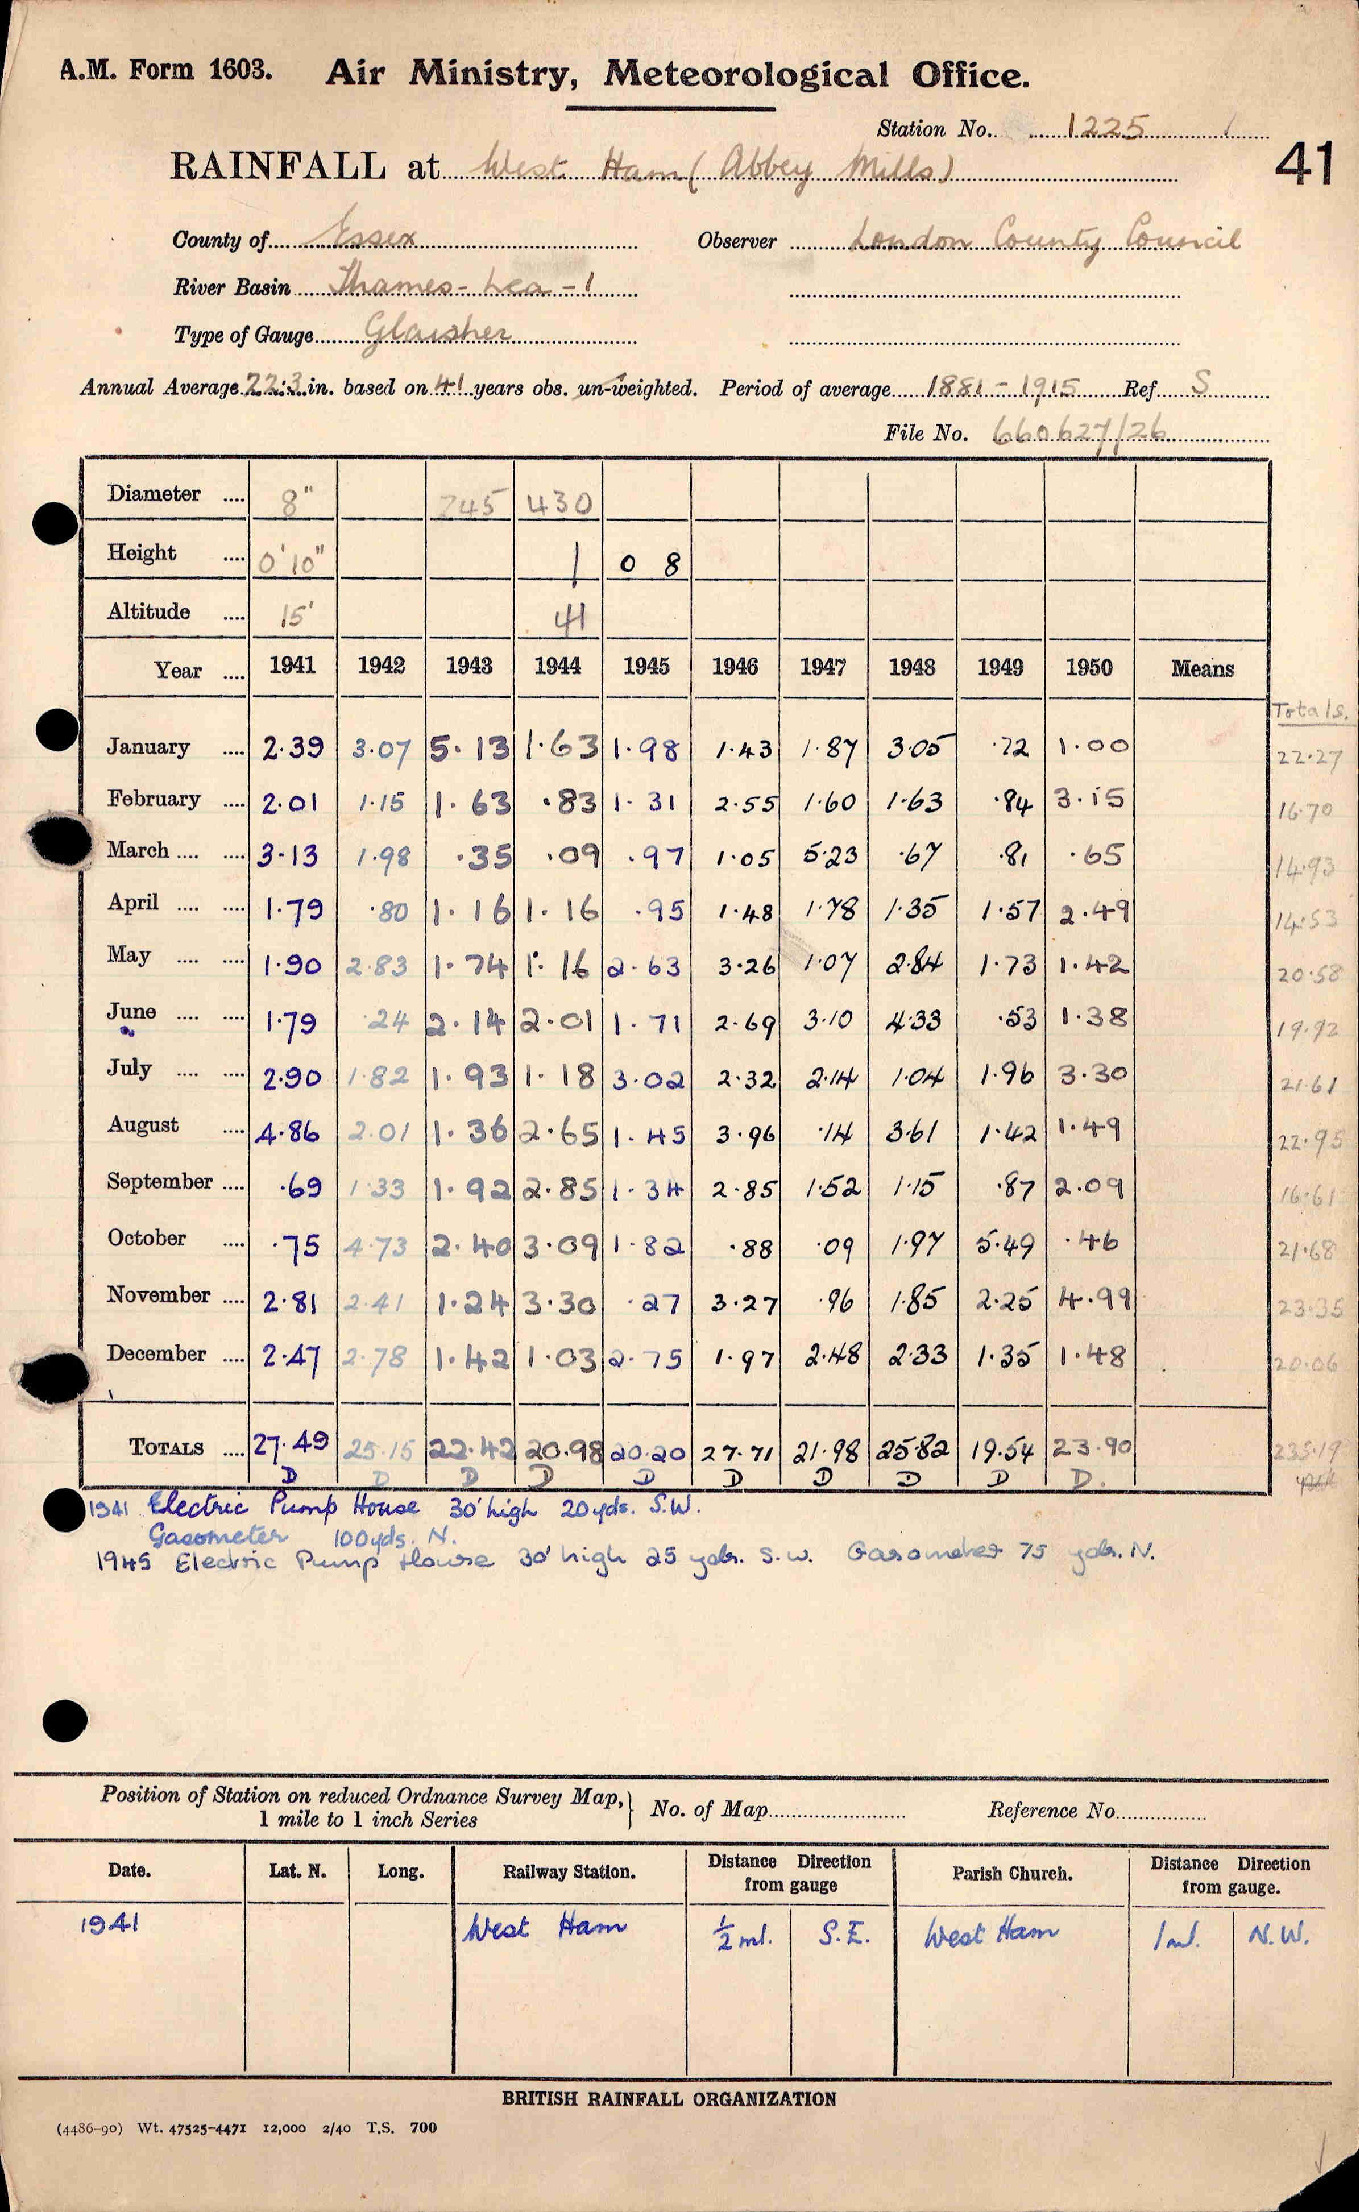 A.M. Form 1603. Air Ministry, Meteorological Office.
Station No. 1225
RAINFALL at West Ham (Abbey Mills) 41
County of Essex Observer London County Council
River Basin Thames - Lea - 1
Type of Gauge Glaisher
Annual Average 22.3 in. based on 41 years obs. un-weighted. Period of average 1881 - 1915 Ref S
File No. 660627/26
Diameter .... 8" 745 430
Height .... 0'10" 1 0 8
Altitude .... 15' 41
Year .... 1941 1942 1943 1944 1945 1946 1947 1948 1949 1950 Means
Totals.
January .... 2.39 3.07 5.13 1.63 1.98 1.43 1.87 3.05 .72 1.00 22.27
February .... 2.01 1.15 1.63 .83 1.31 2.55 1.60 1.63 .84 3.15 16.70
March .... .... 3.13 1.98 .35 .09 .97 1.05 5.23 .67 .81 .65 14.93
April .... .... 1.79 .80 1.16 1.16 .95 1.48 1.78 1.35 1.57 2.49 14.53
May .... .... 1.90 2.83 1.74 1.16 2.63 3.26 1.07 2.84 1.73 1.42 20.58
June .... .... 1.79 .24 2.14 2.01 1.71 2.69 3.10 4.33 .53 1.38 19.92
July .... .... 2.90 1.82 1.93 1.18 3.02 2.32 2.14 1.04 1.96 3.30 21.61
August .... 4.86 2.01 1.36 2.65 1.45 3.96 .14 3.61 1.42 1.49 22.95
September .... .69 1.33 1.92 2.85 1.34 2.85 1.52 1.15 .87 2.09 16.61
October .... .75 4.73 2.40 3.09 1.82 .88 .09 1.97 5.49 .46 21.68
November .... 2.81 2.41 1.24 3.30 .27 3.27 .96 1.85 2.25 4.99 23.35
December .... 2.47 2.78 1.42 1.03 2.75 1.97 2.48 2.33 1.35 1.48 20.06
TOTALS .... 27.49 25.15 22.42 20.98 20.20 27.71 21.98 25.82 19.54 23.90 235.19
D D D D D D D D D D.
1941 Electric Pump House 30' high 20 yds. S.W.
Gasometer 100 yds. N.
1945 Electric Pump House 30' high 25 yds. S.W. Gasometer 75 yds. N.
Position of Station on reduced Ordnance Survey Map, } No. of Map Reference No.
1 mile to 1 inch Series
Date. Lat. N. Long. Railway Station. Distance from gauge Direction Parish Church. Distance from gauge. Direction
1941 West Ham ½ ml. S.E. West Ham 1 ml. N.W.
BRITISH RAINFALL ORGANIZATION
(4486-90) Wt. 47525-4471 12,000 2/40 T.S. 700